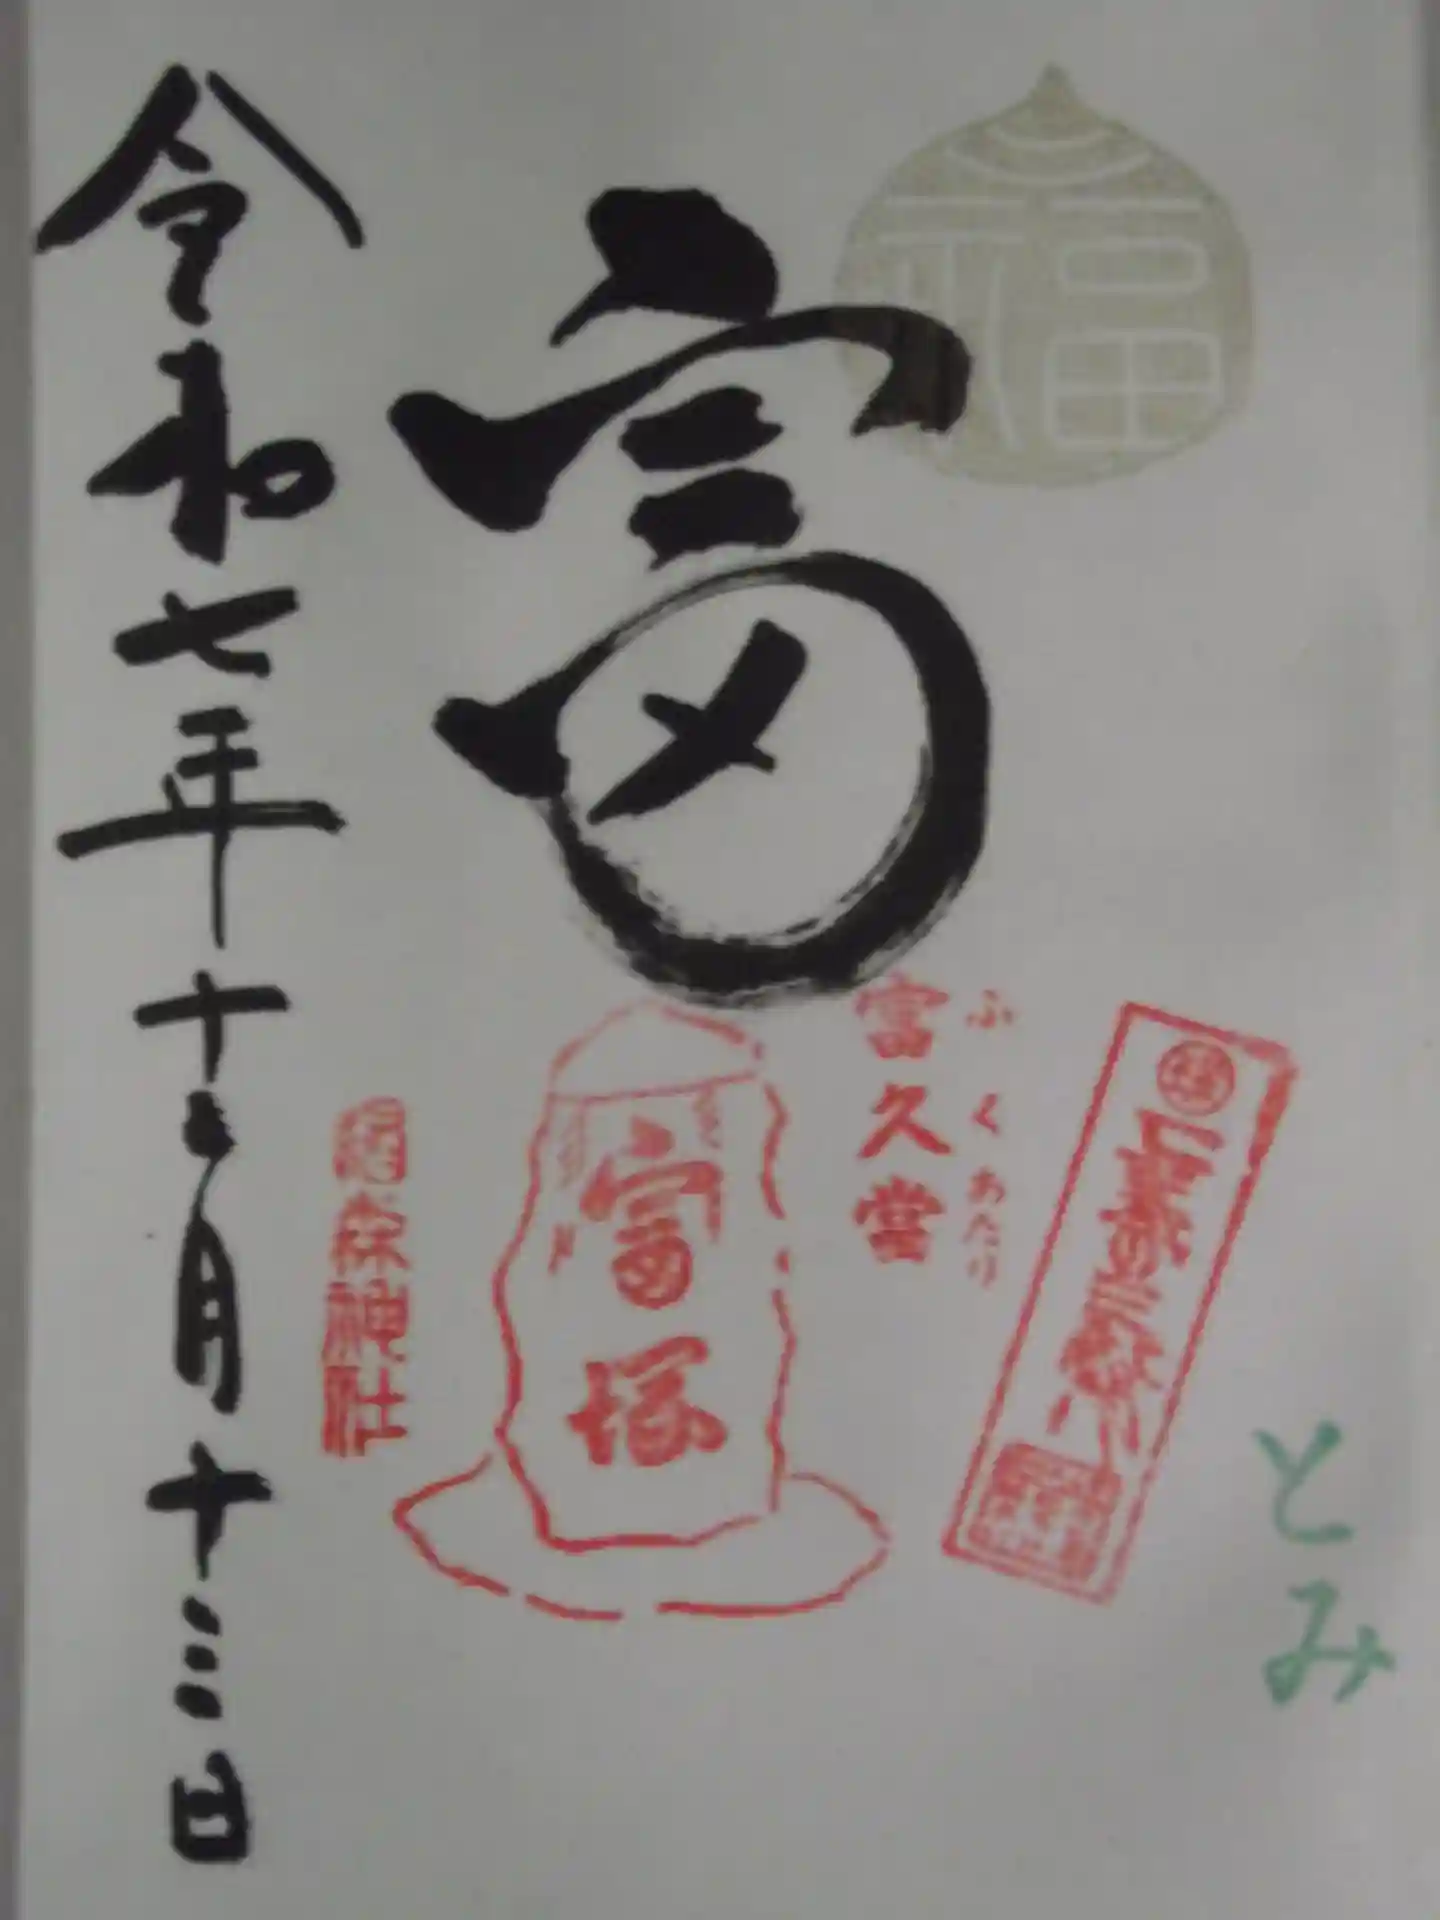 福
富
とみ
ふくあたり
富久當
富塚
椙森神社
令和七年十二月十三日